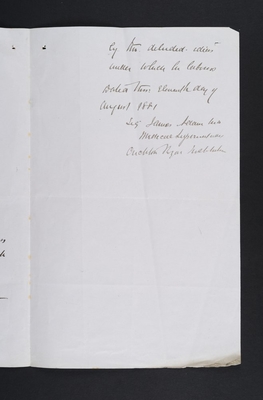 by the deluded ideas
under which he labours
Dated this Eleventh day of
August 1881
Sig James Adam M.D.
Medical Superintendent
Crichton Royal Institution